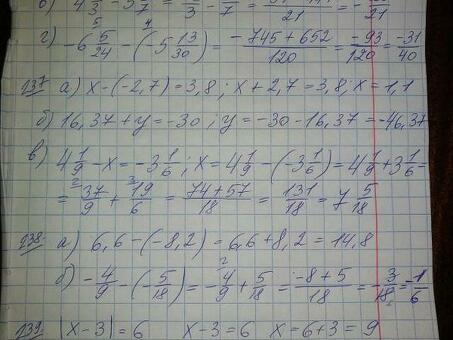 б) 4 2/3 - 3 /7 = /3 - /7 = /21 = - /21
г) -6 5/24 - (-5 13/30) = -745+652/120 = -93/120 = -31/40
237. а) x-(-2,7)=3,8; x+2,7=3,8; x=1,1
б) 16,37+y=-30; y=-30-16,37=-46,37
в) 4 1/9 - x = -3 1/6; x = 4 1/9 - (-3 1/6) = 4 1/9 + 3 1/6 =
= 37/9 + 19/6 = 74+57/18 = 131/18 = 7 5/18
238. а) 6,6-(-8,2)=6,6+8,2=14,8
б) -4/9 - (-5/18) = -4/9 + 5/18 = -8+5/18 = -3/18 = -1/6
239. |x-3|=6 x-3=6 x=6+3=9